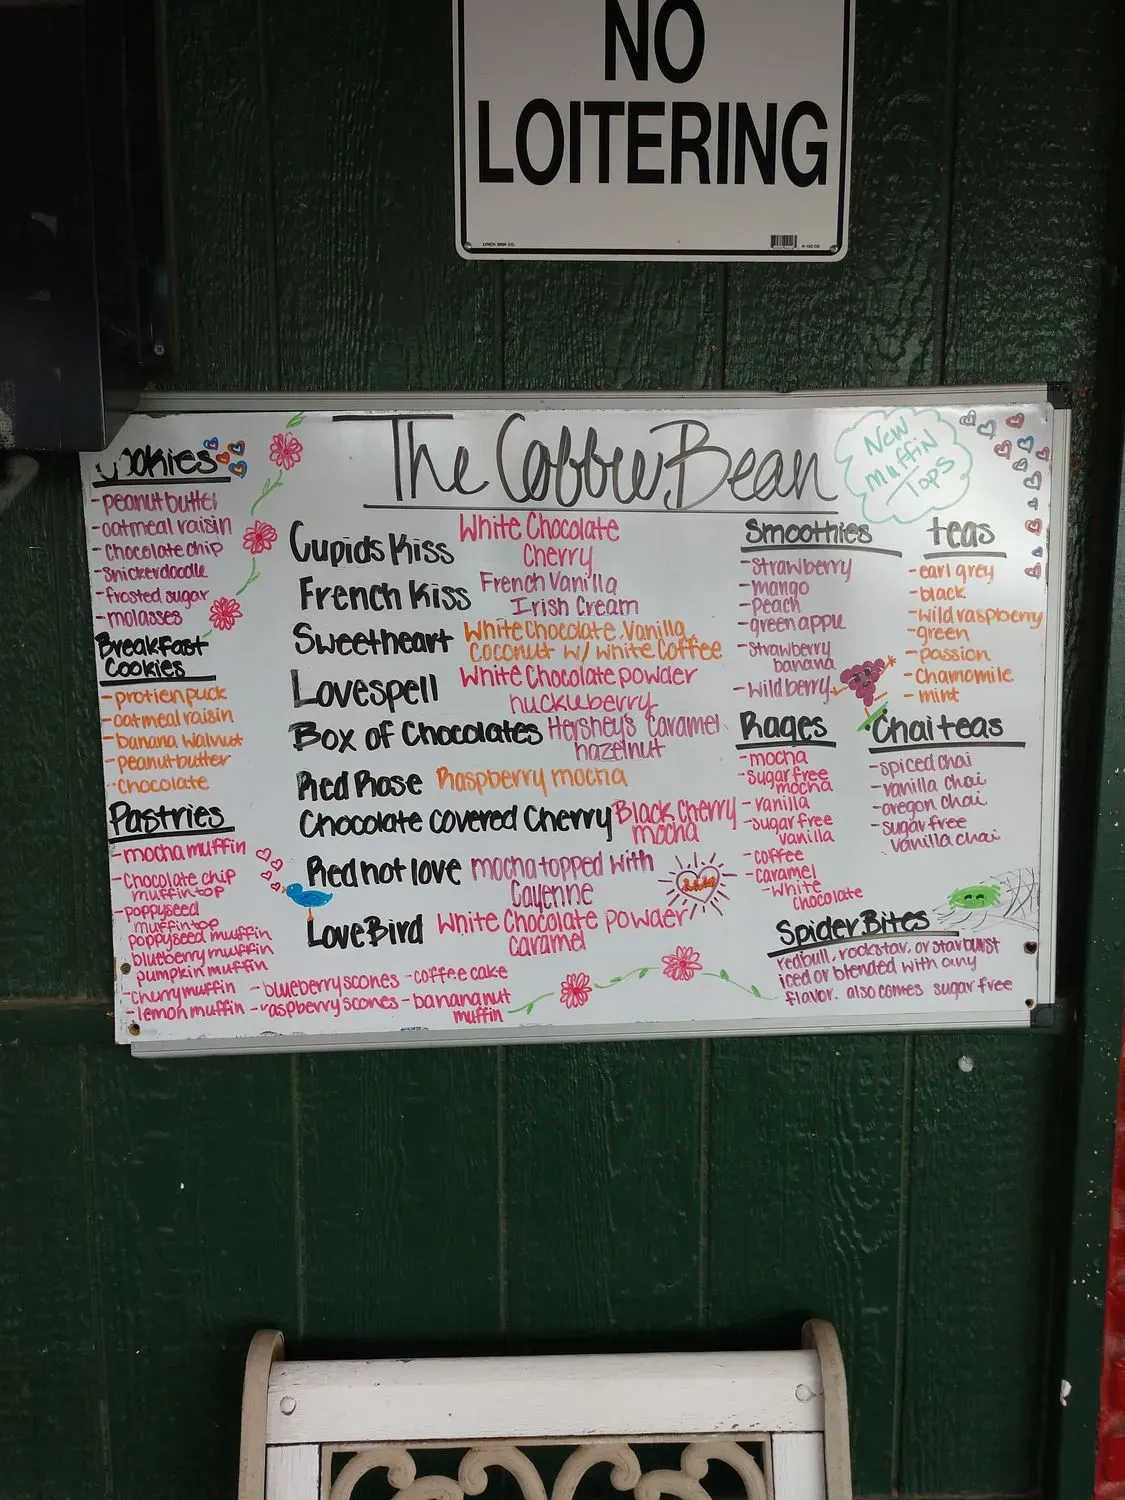 NO
LOITERING
LYNCH SIGN CO.
The Coffee Bean
New
Muffin
Tops
Cookies
-peanut butter
-oatmeal raisin
-chocolate chip
-snickerdoodle
-frosted sugar
-molasses
Breakfast
Cookies
-protien puck
-oatmeal raisin
-banana walnut
-peanut butter
-chocolate
Pastries
-mocha muffin
-chocolate chip
muffin top
-poppyseed
muffin top
poppyseed muffin
blueberry muffin
pumpkin muffin
-cherry muffin
-lemon muffin
-blueberry scones
-raspberry scones
-coffee cake
-banana nut
muffin
Cupids Kiss White Chocolate
Cherry
French Kiss French Vanilla
Irish Cream
Sweetheart White Chocolate, Vanilla
Coconut w/ White Coffee
Lovespell White Chocolate powder
huckleberry
Box of Chocolates Hershey's Caramel
hazelnut
Red Rose Raspberry mocha
Chocolate covered Cherry Black Cherry
mocha
Red hot love mocha topped with
Cayenne
Love Bird White Chocolate powder
caramel
Smoothies
-strawberry
-mango
-peach
-green apple
-strawberry
banana
-wildberry
teas
-earl grey
-black
-wild raspberry
-green
-passion
-chamomile
-mint
Rages
-mocha
-sugar free
mocha
-vanilla
-sugar free
vanilla
-coffee
-caramel
-white
chocolate
Chai teas
-spiced chai
-vanilla chai
-oregon chai
-sugar free
vanilla chai
Spider Bites
redbull, rockstar, or starburst
iced or blended with any
flavor. also comes sugar free